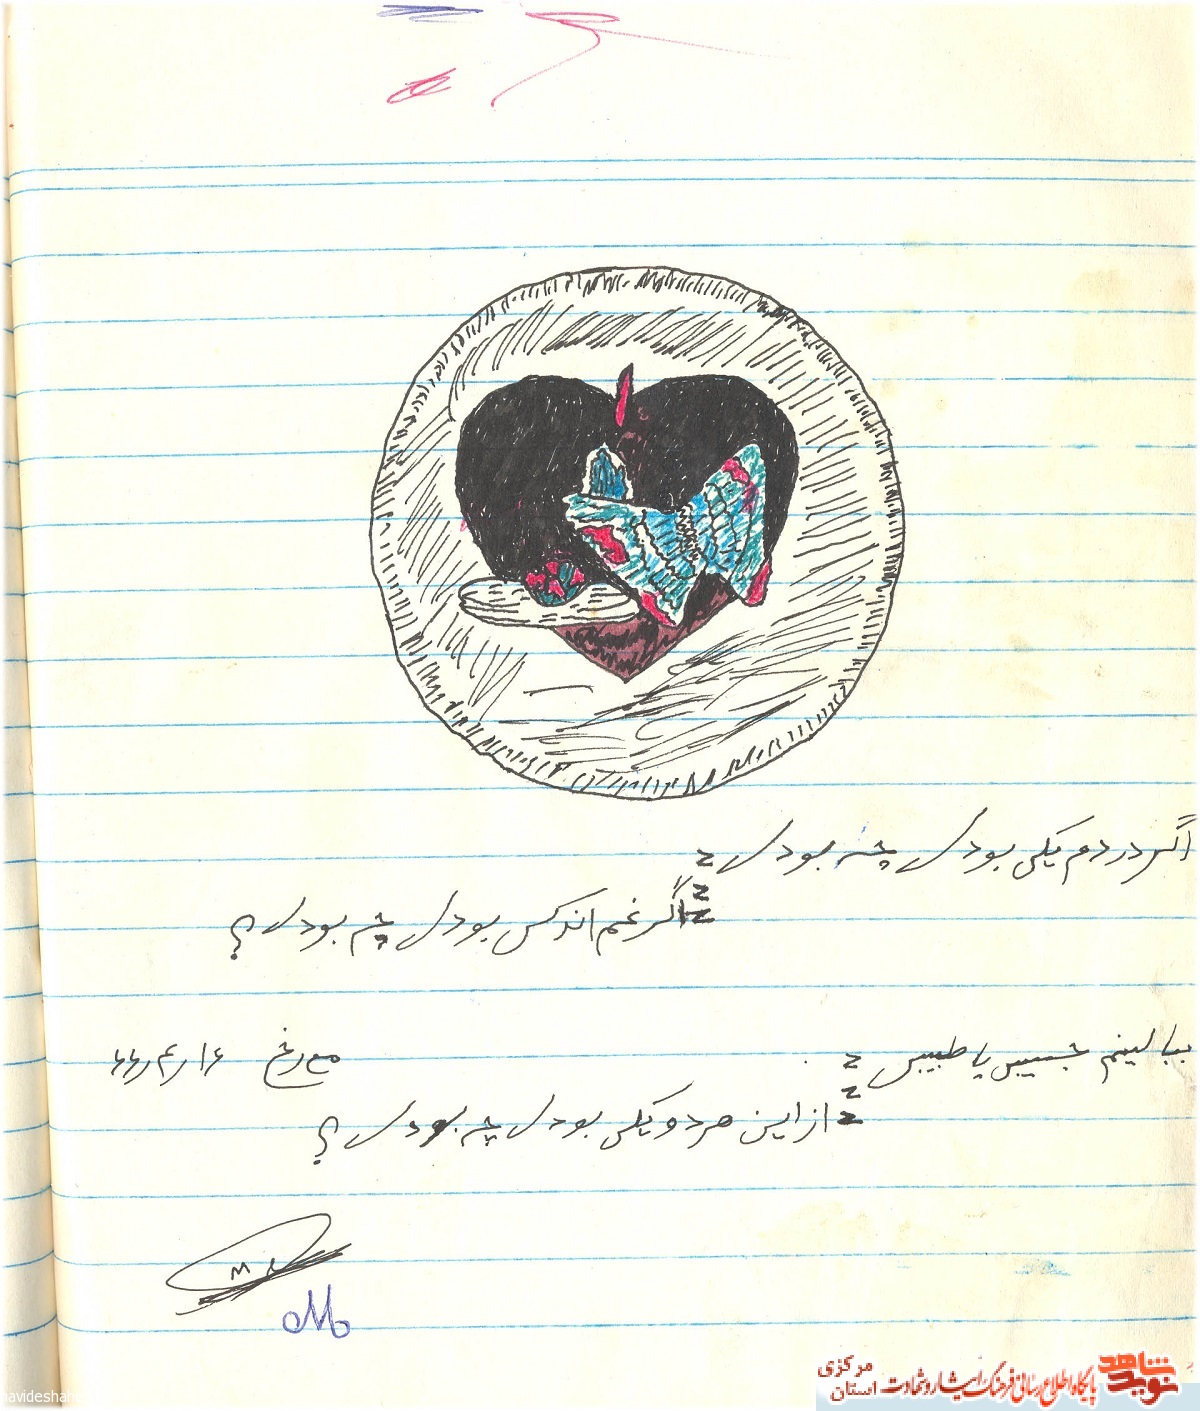 اگر دردم یکی بودی چه بودی
اگر غم اندکی بودی چه بودی؟
ببالینم حبیبی یا طبیبی
مورخ ۶۶٫۴٫۱۶
از این هر دو یکی بودی چه بودی؟
M
نوید شاهد
پایگاه اطلاع رسانی فرهنگ ایثار و شهادت
استان مرکزی